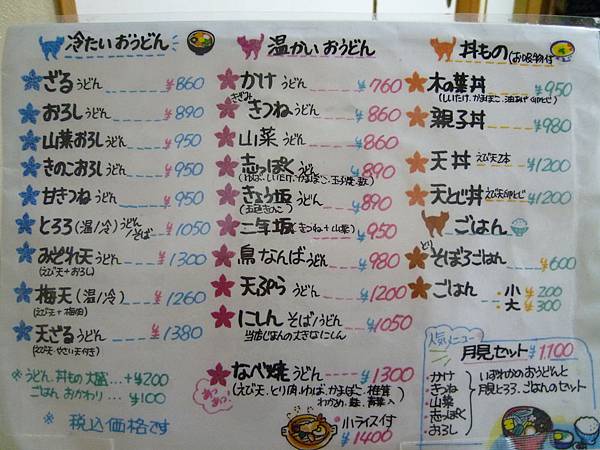 冷たいおうどん
ざるうどん ¥860
おろしうどん ¥890
山菜おろしうどん ¥950
きのこおろしうどん ¥950
甘きつねうどん ¥950
とろろ(温/冷)うどん/そば ¥1050
みぞれ天うどん ¥1300
(えび天+おろし)
梅天(温/冷) ¥1260
(えび天+梅肉)
天ざるうどん ¥1380
(えび天 やさい天付き)
※うどん、丼もの 大盛…+¥200
ごはん おかわり… ¥100
※ 税込価格です
温かいおうどん
かけうどん ¥760
きざみきつねうどん ¥860
山菜うどん ¥860
志っぽくうどん ¥890
(ゆば、しいたけ、かまぼこ、玉子焼、麩)
きょう坂うどん ¥890
(五色きのこ)
二年坂(きつね+山菜) ¥950
鳥なんばうどん ¥980
天ぷらうどん ¥1200
にしんそば/うどん ¥1050
当店じまんの大きなにしん
なべ焼うどん ¥1300
あつあつ
(えび天、とり肉、ゆば、かまぼこ、椎茸
わかめ、麩、青葉入)
小ライス付 ¥1400
丼もの(お吸物付)
木の葉丼 ¥950
(しいたけ、かまぼこ、油あげ 卵とじ)
親子丼 ¥980
天丼 えび天2本 ¥1200
天とじ丼 えび天卵とじ ¥1200
ごはん
とりそぼろごはん ¥600
ごはん 小 ¥200
大 ¥300
人気メニュー
月見セット ¥1100
・かけ
・きつね
・山菜
・志っぽく
・おろし
いずれかのおうどんと
月見とろろ、ごはんのセット